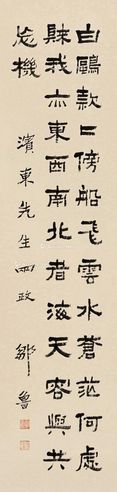 白鷗款款傍船飛雲水蒼茫何處
賕我亦東西南北者海天容與共
忘機
濱東先生兩政
鄒魯